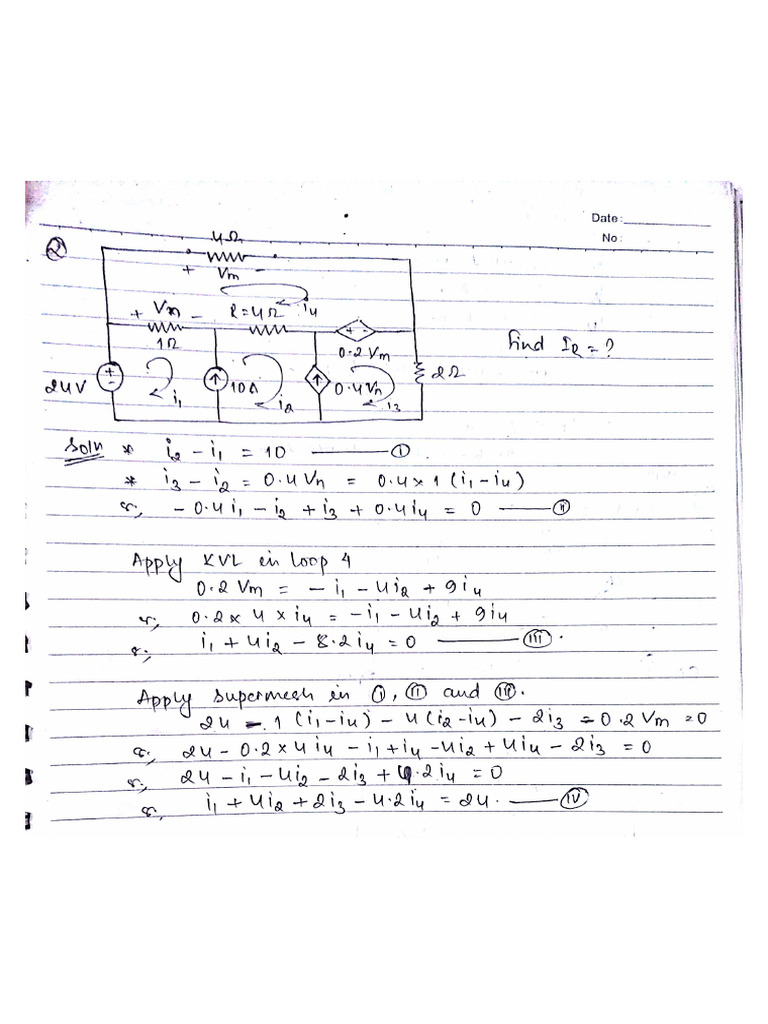 Date:
No:
②
4Ω
+ Vm -
i4
+ Vn -
R=4Ω
1Ω
+ -
0.2 Vm
find IR = ?
+
-
24V
i1
10A
i2
0.4Vn
i3
2Ω
Soln * i2 - i1 = 10 ——— Ⓘ
* i3 - i2 = 0.4 Vn = 0.4 × 1 (i1 - i4)
or, - 0.4 i1 - i2 + i3 + 0.4 i4 = 0 ——— Ⓘⓘ
Apply KVL in loop 4
0.2 Vm = - i1 - 4i2 + 9i4
or, 0.2 × 4 × i4 = - i1 - 4i2 + 9i4
or, i1 + 4i2 - 8.2 i4 = 0 ——— (III).
Apply supermesh in (I), (II) and (III).
24 - 1 (i1 - i4) - 4 (i2 - i4) - 2i3 - 0.2 Vm = 0
or, 24 - 0.2 × 4 i4 - i1 + i4 - 4i2 + 4i4 - 2i3 = 0
or, 24 - i1 - 4i2 - 2i3 + 4.2 i4 = 0
or, i1 + 4i2 + 2i3 - 4.2 i4 = 24. ——— (IV)